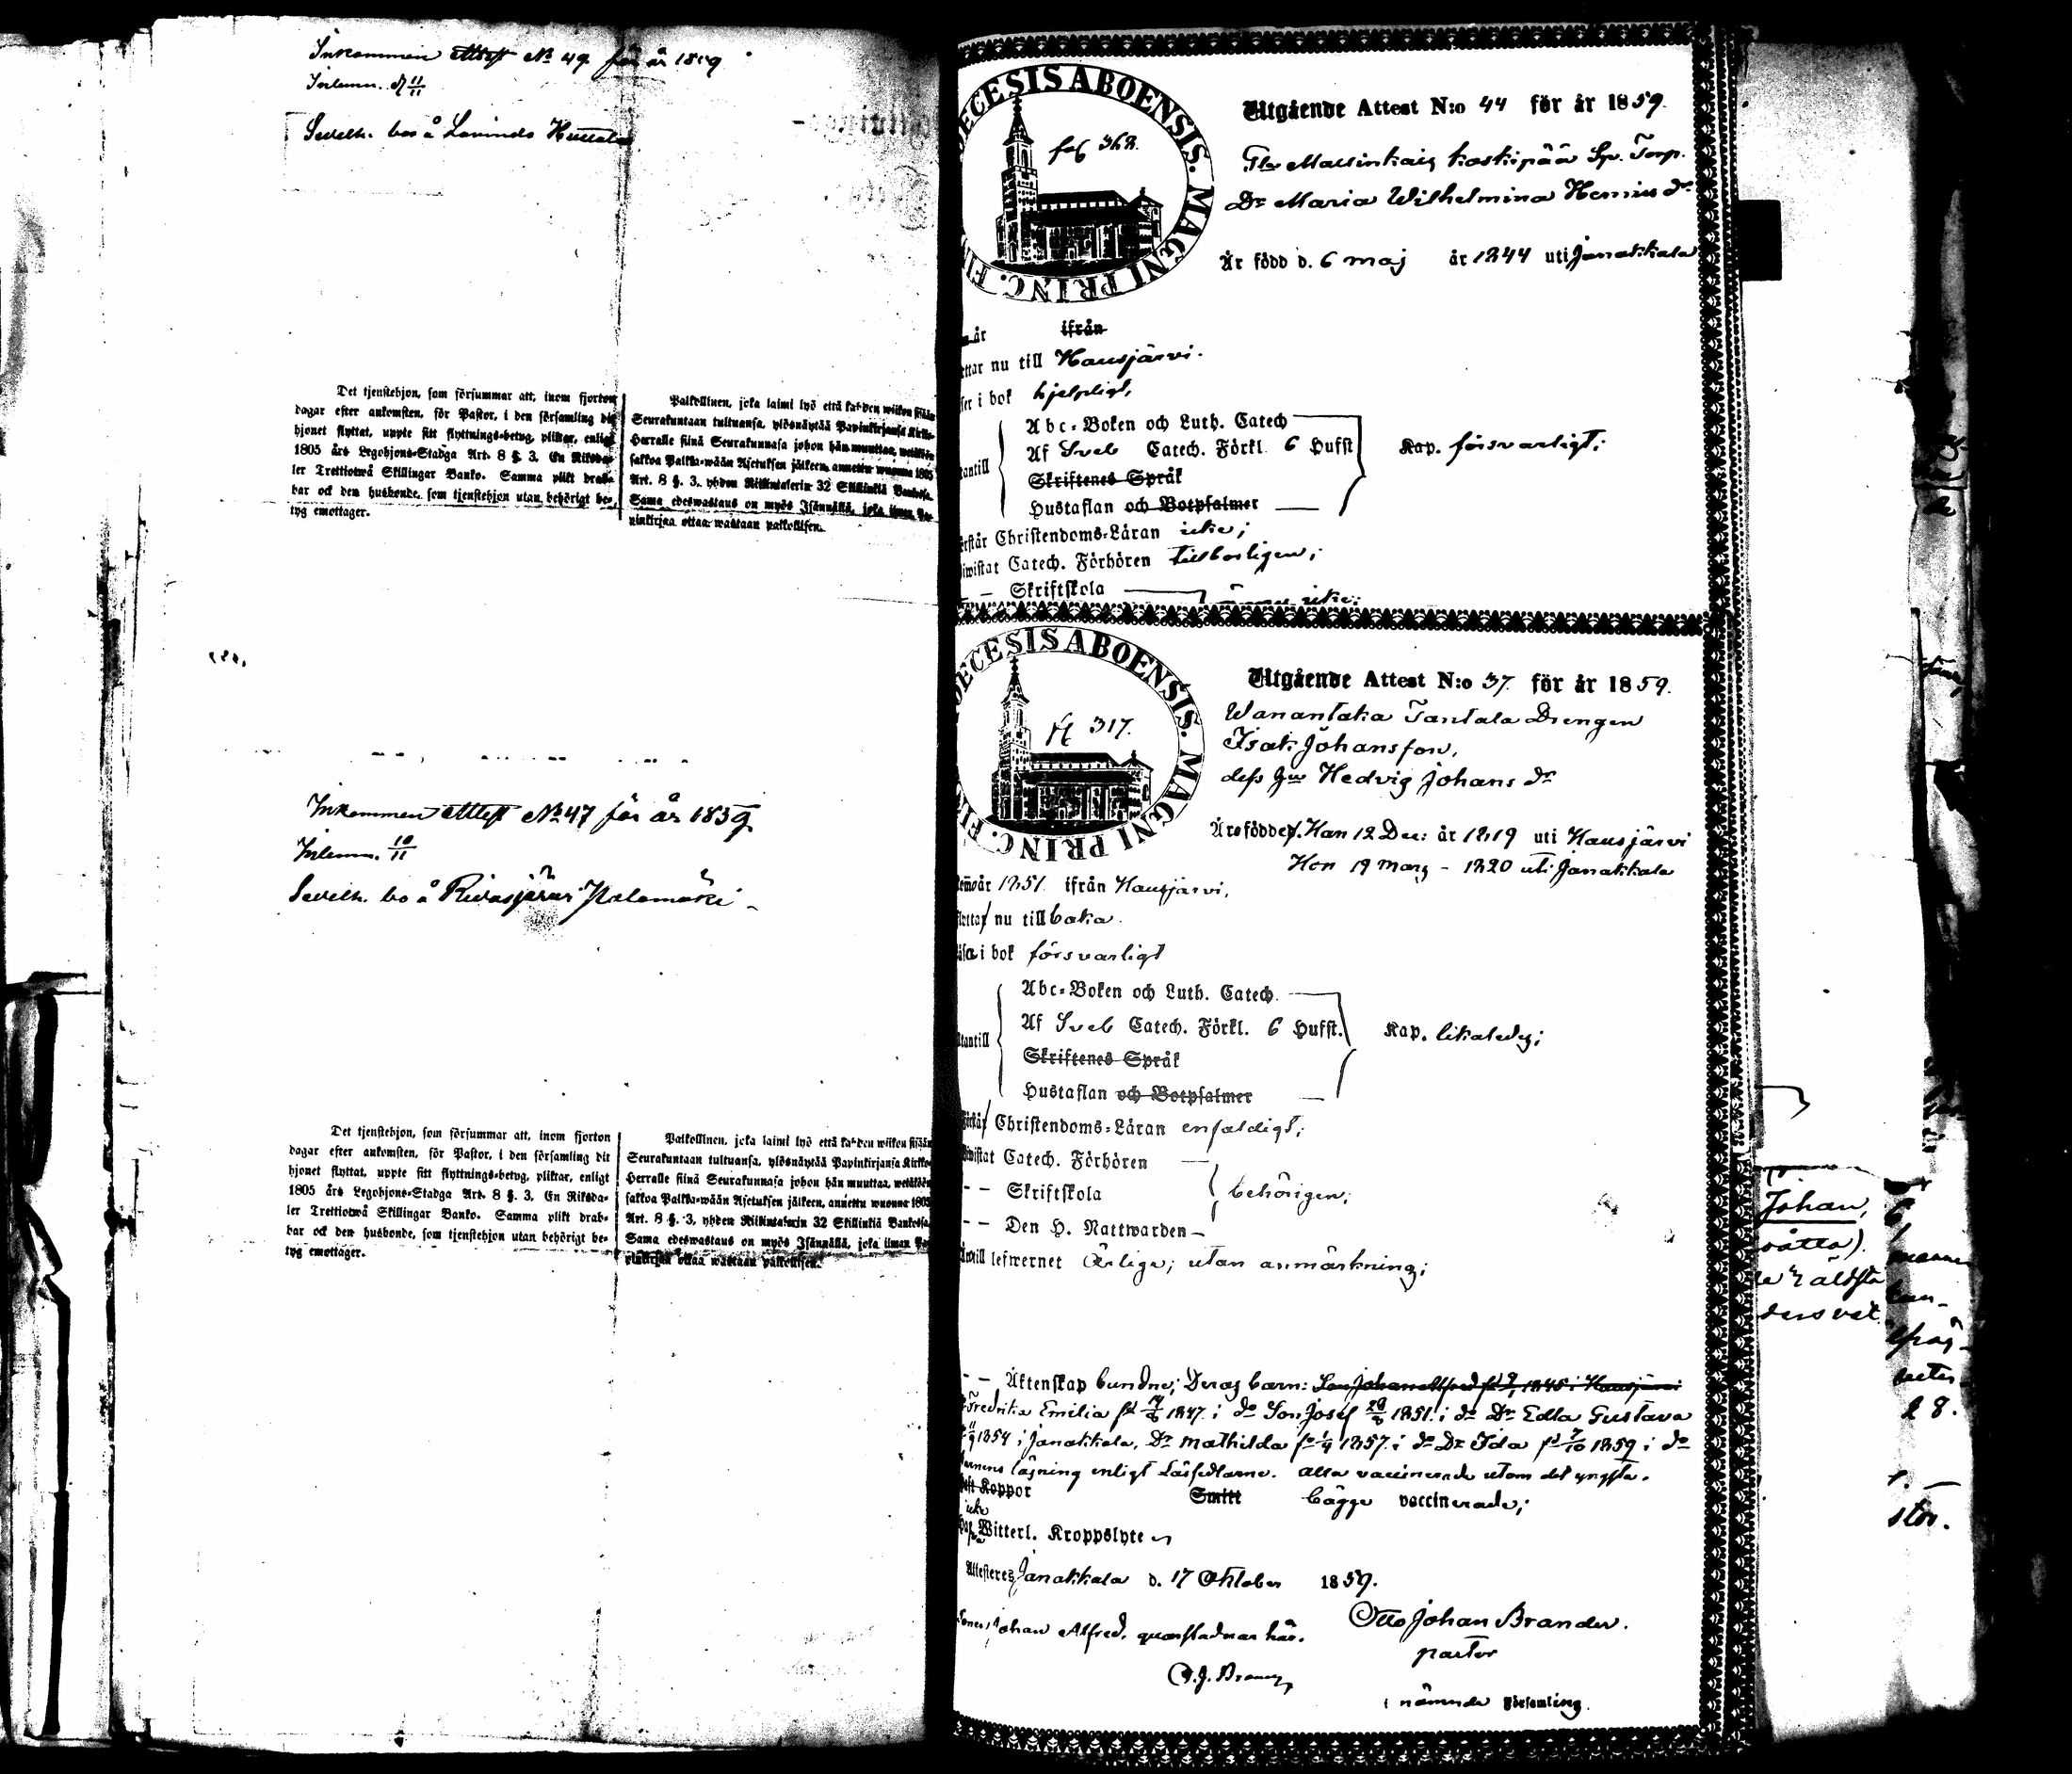 Inkommen Attest No 49 för år 1859
Inlemn. d 11/11
Sedeln. bos å Lavinds
Det tjenstehjon, som försummar att, inom fjorton
dagar efter ankomsten, för Pastor, i den församling dit
hjonet flyttat, uppte sitt flyttnings-betyg, pliktar, enligt
1805 års Legohjons-Stadga Art. 8 §. 3. En Riksda-
ler Trettiotwå Skillingar Banko. Samma plikt drab-
bar ock den husbonde, som tjenstehjon utan behörigt be-
tyg emottager.
Palkollinen, joka laimi lyö että kahden wiikon sisään
Seurakuntaan tultuansa, ylösnäytää Papinkirjansa Kirkko-
Herralle siinä Seurakunnasa johon hän muuttaa, wetäköön
sakkoa Palkka-wään Asetuksen jälkeen, annettu wuonna 1805
Art. 8 §. 3, yhden Riikintalerin 32 Skillinkiä Bankosa.
Sama edeswastaus on myös Isännällä, joka ilman Pa-
pinkirjaa ottaa wastaan palkollisen.
Inkommen Attest No 47 för år 1859
Inlemn. 10/11
Sedeln. bo å Ridasjärvi Palomäki
Det tjenstehjon, som försummar att, inom fjorton
dagar efter ankomsten, för Pastor, i den församling dit
hjonet flyttat, uppte sitt flyttnings-betyg, pliktar, enligt
1805 års Legohjons-Stadga Art. 8 §. 3. En Riksda-
ler Trettiotwå Skillingar Banko. Samma plikt drab-
bar ock den husbonde, som tjenstehjon utan behörigt be-
tyg emottager.
Palkollinen, joka laimi lyö että kahden wiikon sisään
Seurakuntaan tultuansa, ylösnäytää Papinkirjansa Kirkko-
Herralle siinä Seurakunnasa johon hän muuttaa, wetäköön
sakkoa Palkka-wään Asetuksen jälkeen, annettu wuonna 1805
Art. 8 §. 3, yhden Riikintalerin 32 Skillinkiä Bankosa.
Sama edeswastaus on myös Isännällä, joka ilman Pa-
pinkirjaa ottaa wastaan palkollisen.
DECESIS ABOENSIS. MAGNI PRINC. FI
fol 368.
Utgående Attest N:o 44 för år 1859.
Koskipää Sp. Torp.
Dr Maria Wilhelmina Henriks dr
Är född d. 6 maj år 1844 uti Janakkala
år ifrån
ttar nu till Hausjärvi.
ser i bok hjelpligt,
Abc-Boken och Luth. Catech
Af Sveb Catech. Förkl. 6 Hufst
antill
Kap. försvarligt;
Skriftenes Språk
Hustaflan och Botpsalmer
rstår Christendoms-Läran icke;
iwistat Catech. Förhören tillbörligen;
Skriftskola icke;
DECESIS ABOENSIS. MAGNI PRINC. FI
fol 317.
Utgående Attest N:o 37. för år 1859.
Wanantaka Tantala Drengen
Isak Johansson,
dess hu Hedvig Johans dr
Äro födde Han 12 Dec: år 1819 uti Hausjärvi
Hon 19 Mars - 1820 uti Janakkala
år 1851. ifrån Hausjärvi.
nu tillbaka.
i bok försvarligt
Abc-Boken och Luth. Catech.
Af Sveb Catech. Förkl. 6 Hufst.
Utantill
Kap. likaledes;
Skriftenes Språk
Hustaflan och Botpsalmer
Christendoms-Läran enfaldigt;
wistat Catech. Förhören
- - Skriftskola
behörigen;
- - Den H. Nattwarden
till lefwernet Ärlige; utan anmärkning;
- - Äktenskap bundne; Deras barn: Son Johan Alfred 1845 i Hausjärvi
Fredrika Emilia fd 1847. i do Son Josef 1851. i do Dr Edla Gustava
1854 i Janakkala, Dr Mathilda 1857. i do Dr Ida fd 7/10 1859 i do
läsning enligt Läsedlarne. alla vaccinerade utom det yngsta.
Koppor Smitt bägge vaccinerade;
icke
Witterl. Kroppslyte
Attesteres Janakkala d. 17 Oktober 1859.
Sonen Johan Alfred, qvarstadnar här.
Otto Johan Brander.
pastor
i nämnde Församling.
Johan,